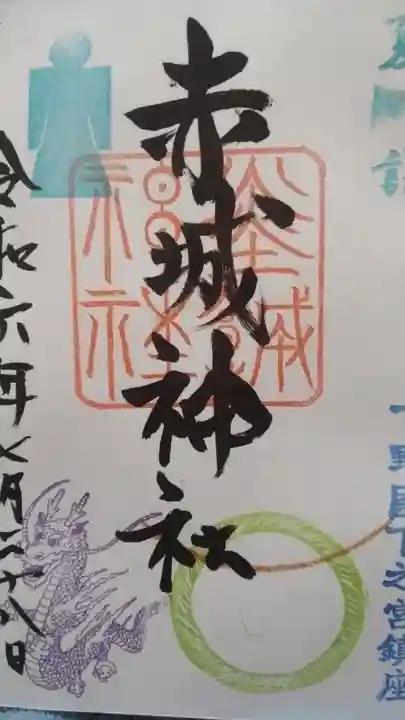 夏詣
下野国下之宮鎮座
赤城神社
赤城神社
令和六年七月二十八日